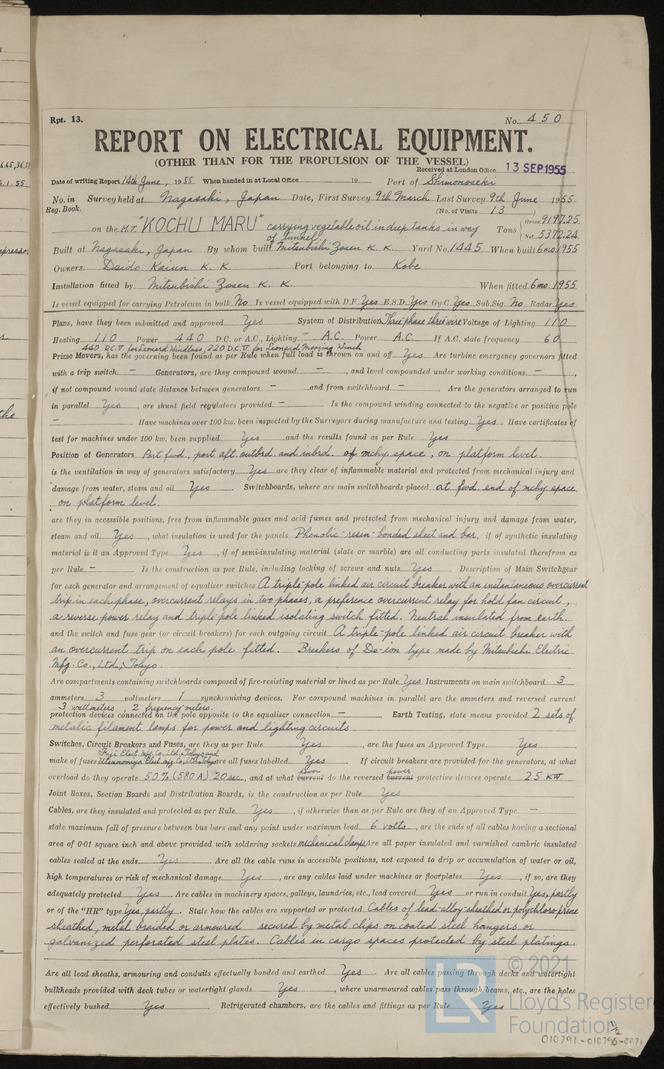 Rpt. 13. No. 450
REPORT ON ELECTRICAL EQUIPMENT.
(OTHER THAN FOR THE PROPULSION OF THE VESSEL)
Received at London Office 13 SEP 1955
Date of writing Report 14th June, 1955 When handed in at Local Office 19 Port of Shimonoseki
No. in Survey held at Nagasaki, Japan Date, First Survey 9th March Last Survey 9th June 1955
Reg. Book. (No. of Visits 13 )
on the M.T. "KOCHU MARU" carrying vegetable oil in deep tanks in way of tunnel Tons Gross 9197.25 Net 5372.24
Built at Nagasaki, Japan By whom built Mitsubishi Zosen K. K. Yard No. 1445 When built 6mo. 1955
Owners Daido Kaiun K. K. Port belonging to Kobe
Installation fitted by Mitsubishi Zosen K. K. When fitted 6mo. 1955
Is vessel equipped for carrying Petroleum in bulk No Is vessel equipped with D.F. Yes E.S.D. Yes Gy.C. Yes Sub.Sig. No Radar Yes
Plans, have they been submitted and approved Yes System of Distribution Three phase three wire Voltage of Lighting 110
Heating 110 Power 440 D.C. or A.C., Lighting A.C. Power A.C. If A.C. state frequency 60
440 D.C.V. for Leonard Windlass, 220 D.C.V. for Leonard Mooring Winch
Prime Movers, has the governing been found as per Rule when full load is thrown on and off Yes Are turbine emergency governors fitted
with a trip switch - Generators, are they compound wound - , and level compounded under working conditions - ,
if not compound wound state distance between generators - and from switchboard - Are the generators arranged to run
in parallel Yes , are shunt field regulators provided - Is the compound winding connected to the negative or positive pole
- Have machines over 100 kw. been inspected by the Surveyors during manufacture and testing Yes. Have certificates of
test for machines under 100 kw. been supplied Yes and the results found as per Rule Yes
Position of Generators Port fwd, port aft. outbrd. and inbrd. of mchy space, on platform level.
is the ventilation in way of generators satisfactory Yes are they clear of inflammable material and protected from mechanical injury and
damage from water, steam and oil Yes . Switchboards, where are main switchboards placed at fwd. end of mchy space
on platform level.
are they in accessible positions, free from inflammable gases and acid fumes and protected from mechanical injury and damage from water,
steam and oil Yes , what insulation is used for the panels Phenolic-resin-bonded sheet and bar, if of synthetic insulating
material is it an Approved Type Yes , if of semi-insulating material (slate or marble) are all conducting parts insulated therefrom as
per Rule - Is the construction as per Rule, including locking of screws and nuts Yes . Description of Main Switchgear
for each generator and arrangement of equaliser switches A triple-pole linked air circuit breaker with an instantaneous overcurrent
trip in each phase, overcurrent relays in two phases, a preference overcurrent relay for hold fan circuit,
a reverse power relay and triple pole linked isolating switch fitted. Neutral insulated from earth.
and the switch and fuse gear (or circuit breakers) for each outgoing circuit A triple-pole linked air circuit breaker with
an overcurrent trip on each pole fitted. Breakers of De-ion type made by Mitsubishi Electric
Mfg. Co., Ltd., Tokyo.
Are compartments containing switchboards composed of fire-resisting material or lined as per Rule Yes Instruments on main switchboard 3
ammeters 3 voltmeters 1 synchronising devices. For compound machines in parallel are the ammeters and reversed current
3 wattmeters, 2 frequency meters.
protection devices connected on the pole opposite to the equaliser connection - Earth Testing, state means provided 2 sets of
metalic filament lamps for power and lighting circuits
Switches, Circuit Breakers and Fuses, are they as per Rule Yes , are the fuses an Approved Type Yes
make of fuses Fuji Elect. Mfg. Co., Ltd., Tokyo and are all fuses labelled Yes If circuit breakers are provided for the generators, at what
overload do they operate 50% (580A) 20 sec., and at what power current do the reversed power current protective devices operate 25 KW
Joint Boxes, Section Boards and Distribution Boards, is the construction as per Rule Yes
Cables, are they insulated and protected as per Rule Yes , if otherwise than as per Rule are they of an Approved Type -
state maximum fall of pressure between bus bars and any point under maximum load 6 volts , are the ends of all cables having a sectional
area of 0·01 square inch and above provided with soldering sockets mechanical clamps Are all paper insulated and varnished cambric insulated
cables sealed at the ends Yes Are all the cable runs in accessible positions, not exposed to drip or accumulation of water or oil,
high temperatures or risk of mechanical damage Yes , are any cables laid under machines or floorplates Yes , if so, are they
adequately protected Yes Are cables in machinery spaces, galleys, laundries, etc., lead covered Yes or run in conduit Yes, partly
or of the "HR" type Yes, partly. State how the cables are supported or protected Cables of lead-alloy-sheathed or polychloroprene
sheathed, metal braided or armoured secured by metal clips on coated steel hangers or
galvanized perforated steel plates. Cables in cargo spaces protected by steel platings.
Are all lead sheaths, armouring and conduits effectually bonded and earthed Yes Are all cables passing through decks and watertight
bulkheads provided with deck tubes or watertight glands Yes , where unarmoured cables pass through beams, etc., are the holes
effectively bushed Yes Refrigerated chambers, are the cables and fittings as per Rule Yes
© 2021
LR
Lloyd's Register
Foundation